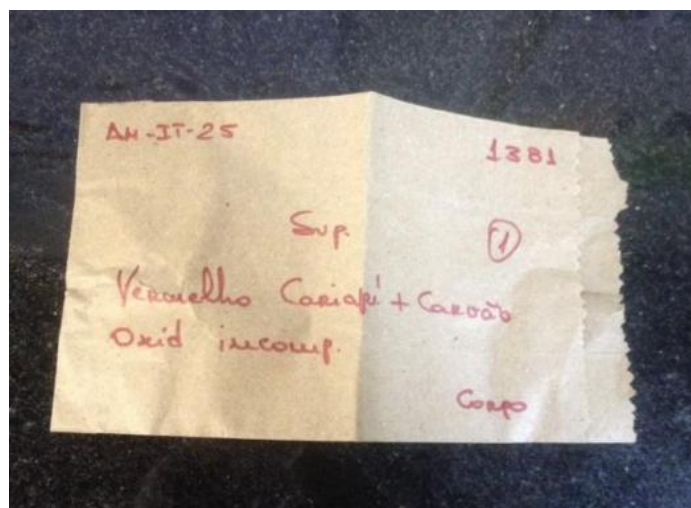 AM-IT-25 1381
Sup. 1
Vermelho Cariapé + Carvão
Oxid incomp.
Corpo